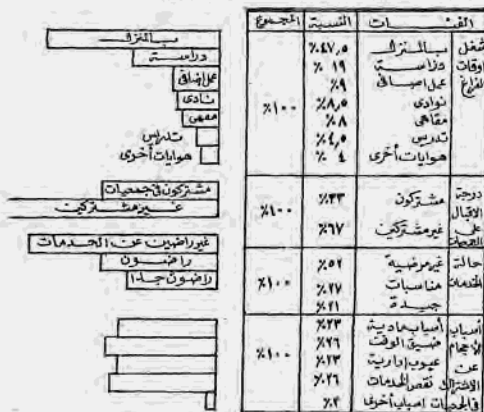 الفئات النسبة المجموع
شغل أوقات الفراغ
بالمنزل ٤٧,٥٪
دراسة ١٩٪
عمل اضافى ٩٪
نوادى ٨,٥٪
مقاهى ٨٪
تدريس ٤,٥٪
هوايات أخرى ٤٪
١٠٠٪
درجة الاقبال على الجمعيات
مشتركون ٣٣٪
غير مشتركين ٦٧٪
١٠٠٪
حالة الخدمات
غير مرضية ٥٢٪
مناسبات ٢٧٪
جيدة ٢١٪
١٠٠٪
أسباب الأحجام عن الاشتراك فى الجمعيات
أسباب مادية ٢٣٪
ضيق الوقت ٢٦٪
عيوب إدارية ٢٣٪
نقص الخدمات ٢٦٪
اسباب أخرى ٢٪
١٠٠٪
بالمنزل
دراسة
عمل اضافى
نادى
مقهى
تدريس
هوايات أخرى
مشتركون فى جمعيات
غير مشتركين
غير راضين عن الخدمات
راضون
راضون جدا